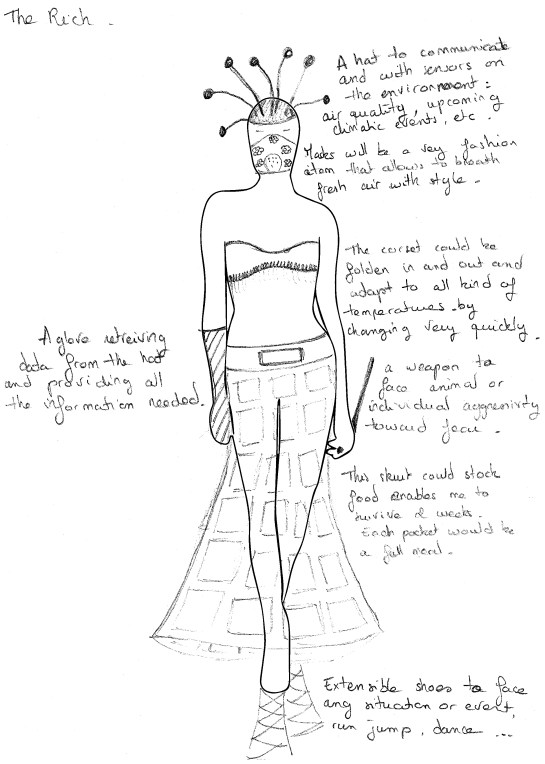 The Rich.
A hat to communicate
and with sensors on
the environment :
air quality, upcoming
climatic events, etc.
Masks will be a very fashion
item that allows to breath
fresh air with style.
The corset could be
golden in and out and
adapt to all kind of
temperatures by
changing very quickly.
A glove retreiving
data from the hat
and providing all
the information needed.
a weapon to
face animal or
individual aggressivity
toward
This skirt could stock
food enables me to
survive 2 weeks.
Each pocket would be
a full meal.
Extensible shoes to face
any situation or event,
run jump, dance ...